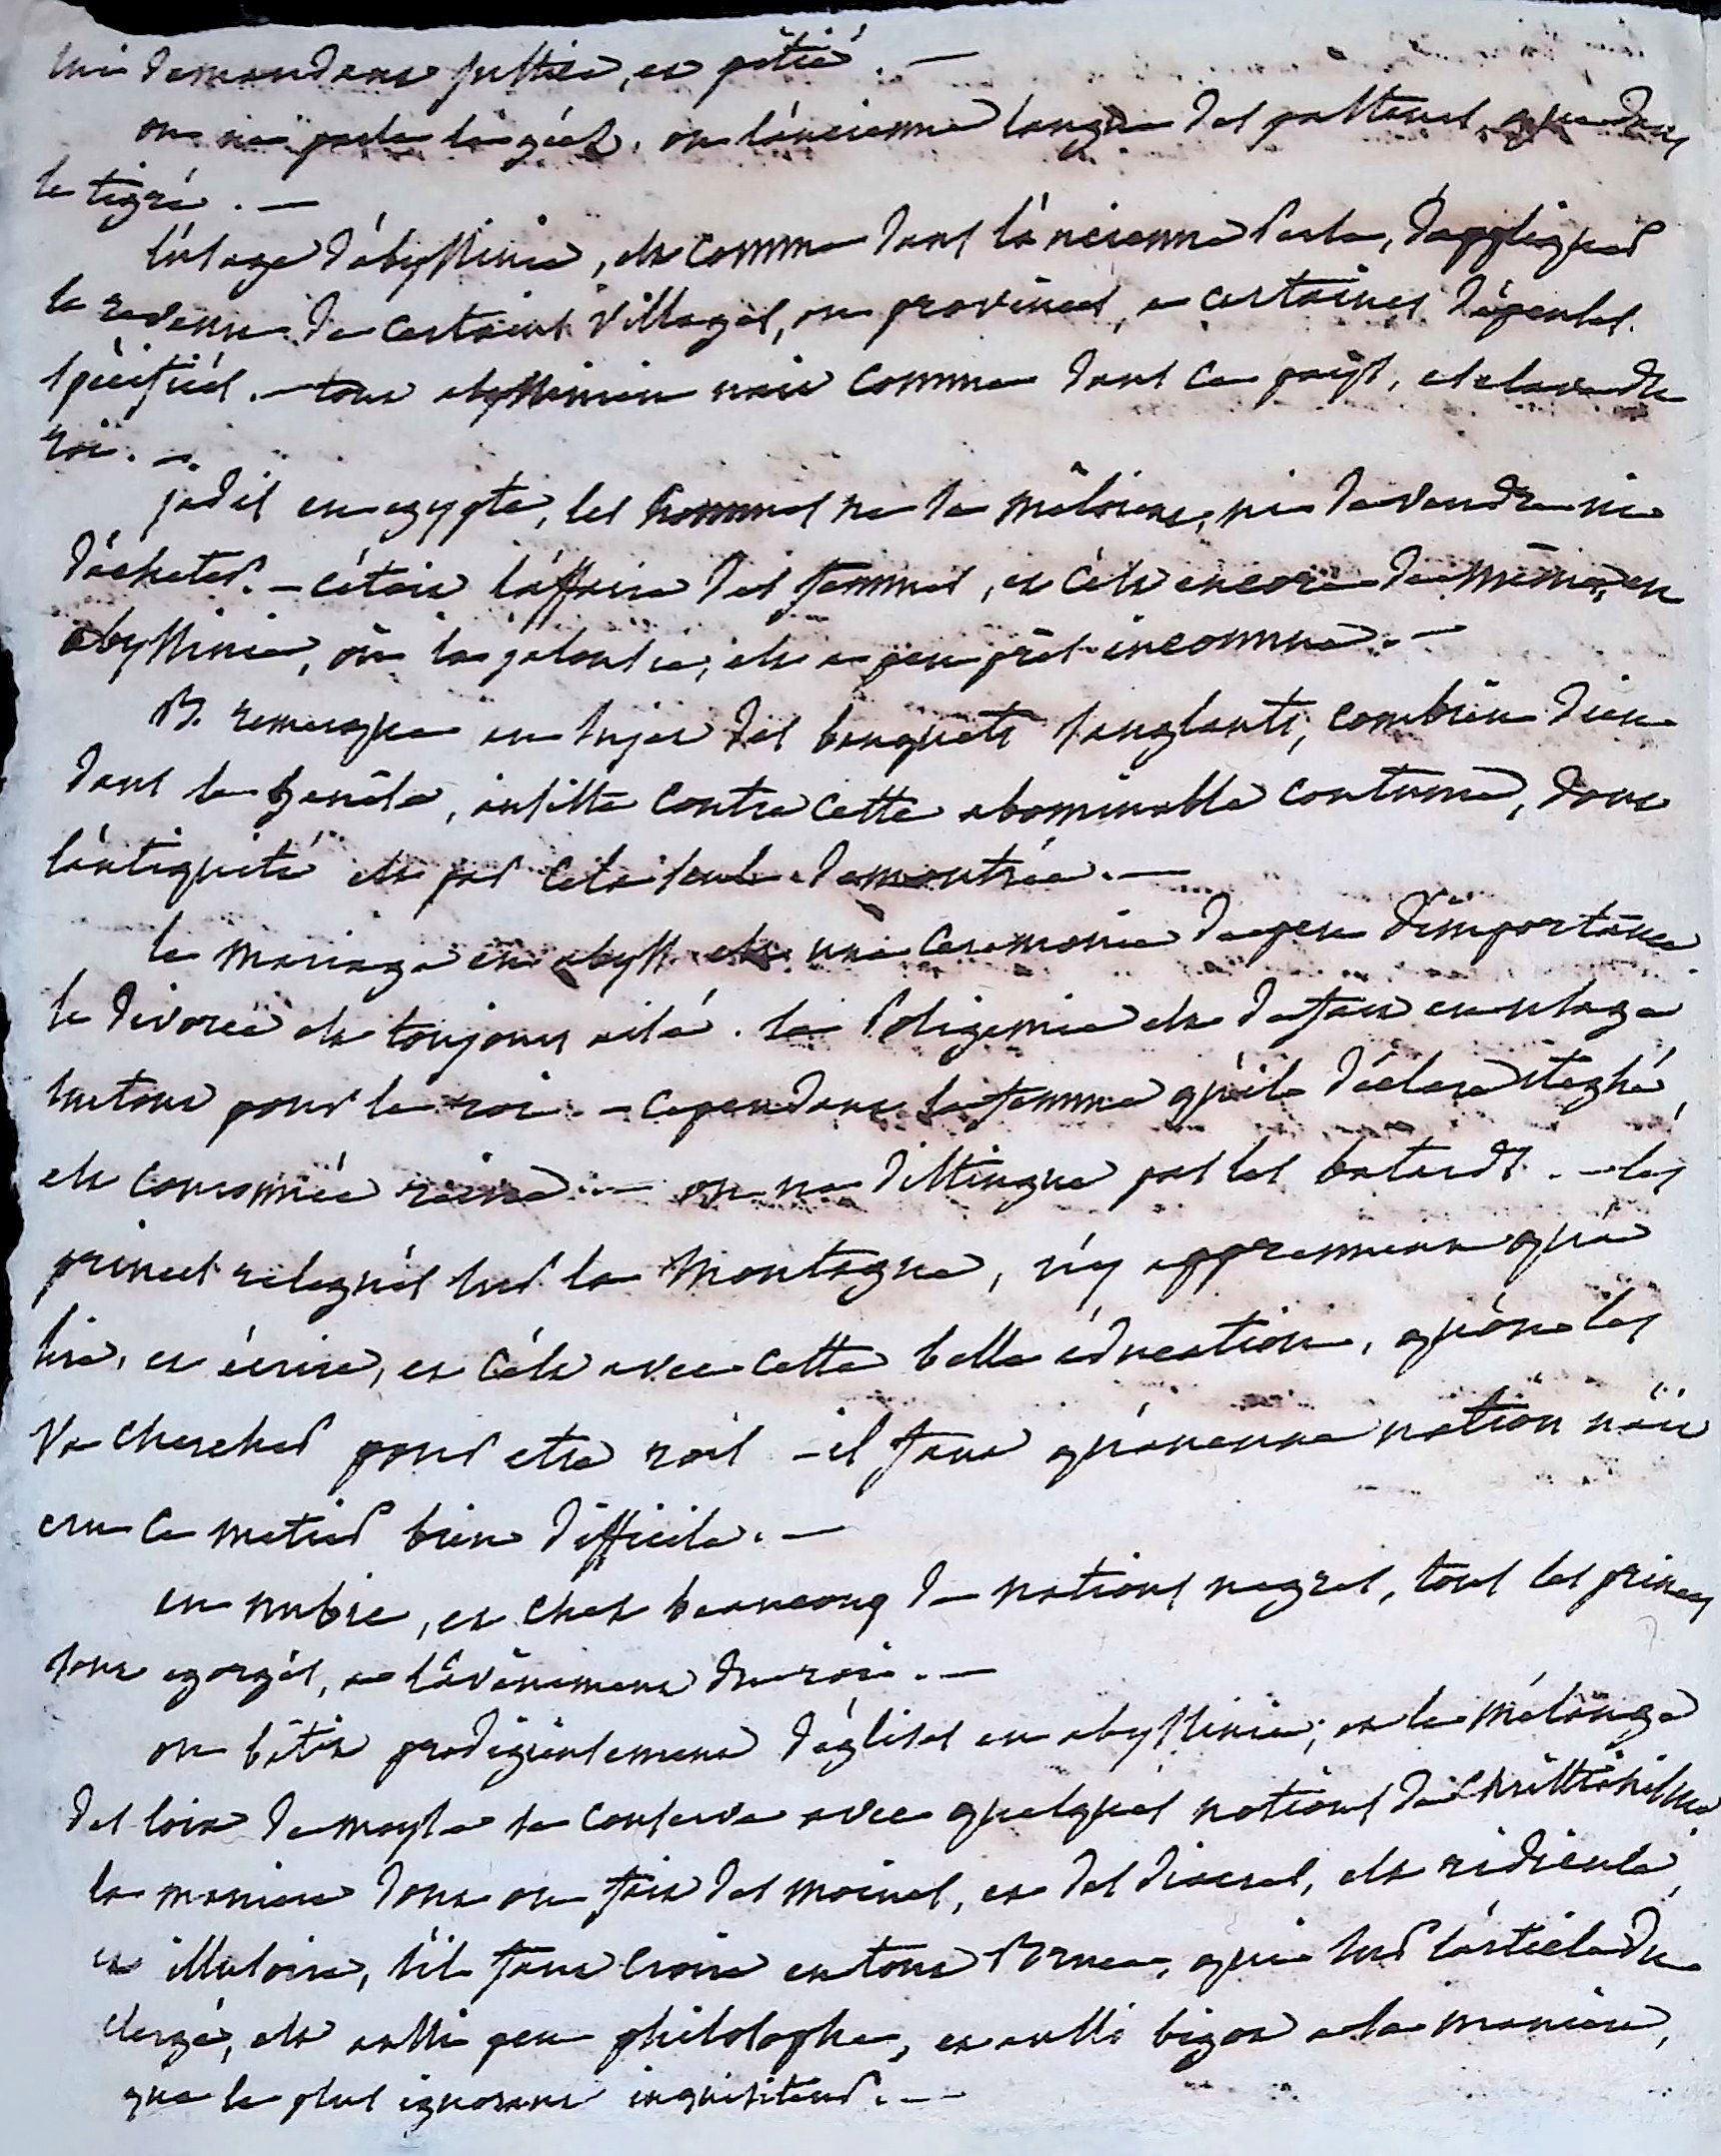 lui demandant justice, et pitié. —
on ne parle le géez, ou l'ancienne langue des pasteurs, que dans
le tigré. —
l'usage d'abyssinie, est comme dans l'ancienne Perse, d'appliquer
le revenu de certains villages, ou provinces, a certaines dépenses
spécifiées. — tout abyssinien nait comme dans ce païs, esclave du
roi. —
jadis en egypte, les hommes ne se mêloient, ni de vendre ni
d'acheter. — c'étoit l'affaire des femmes, et c'est encore de même, en
abyssinie, où la jalousie, est a peu près inconnue. —
B. remarque au sujet des banquets sanglants, combien dieu
dans la Genèse, insiste contre cette abominable coutume, dont
l'antiquité est par cela seul demontrée. —
le mariage en abyss. est une ceremonie de peu d'importance
le divorce est toujours aisé. la Poligamie est de fait en usage
surtout pour le roi. — cependant la femme qu'il déclare iteghé,
est couronnée reine. — on ne distingue pas les batards. — les
princes relegués sur la montagne, n'y apprennent qu'a
lire, et écrire, et c'est avec cette belle éducation, qu'on les
va chercher pour etre rois — il faut qu'aucune nation n'ait
cru ce metier bien difficile. —
en nubie, et chez beaucoup de nations negres, tous les princes
sont egorgés, a l'avènement du roi. —
on bâtit prodigieusement d'églises en abyssinie; et le mélange
des loix de moyse se conserve avec quelques notions de christianisme
la maniere dont on fait des moines, et des diacres, est ridicule,
et illusoire, s'il faut croire en tout Bruce, qui sur l'article du
clergé, est aussi peu philosophe, et aussi bigot a sa maniere,
que le plus ignorant inquisiteur. —